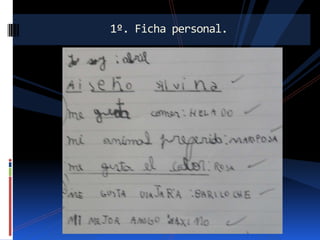 1º. Ficha personal.
yo soy : abril
AisEÑO silvina
me gusta comer: HELADO
mi animal preferido: MARIPOSA
me gusta el color: ROSA
ME GOSTA VIAJAR A : BARILOCHE
MI MEJOR AMIGO MAXIMO